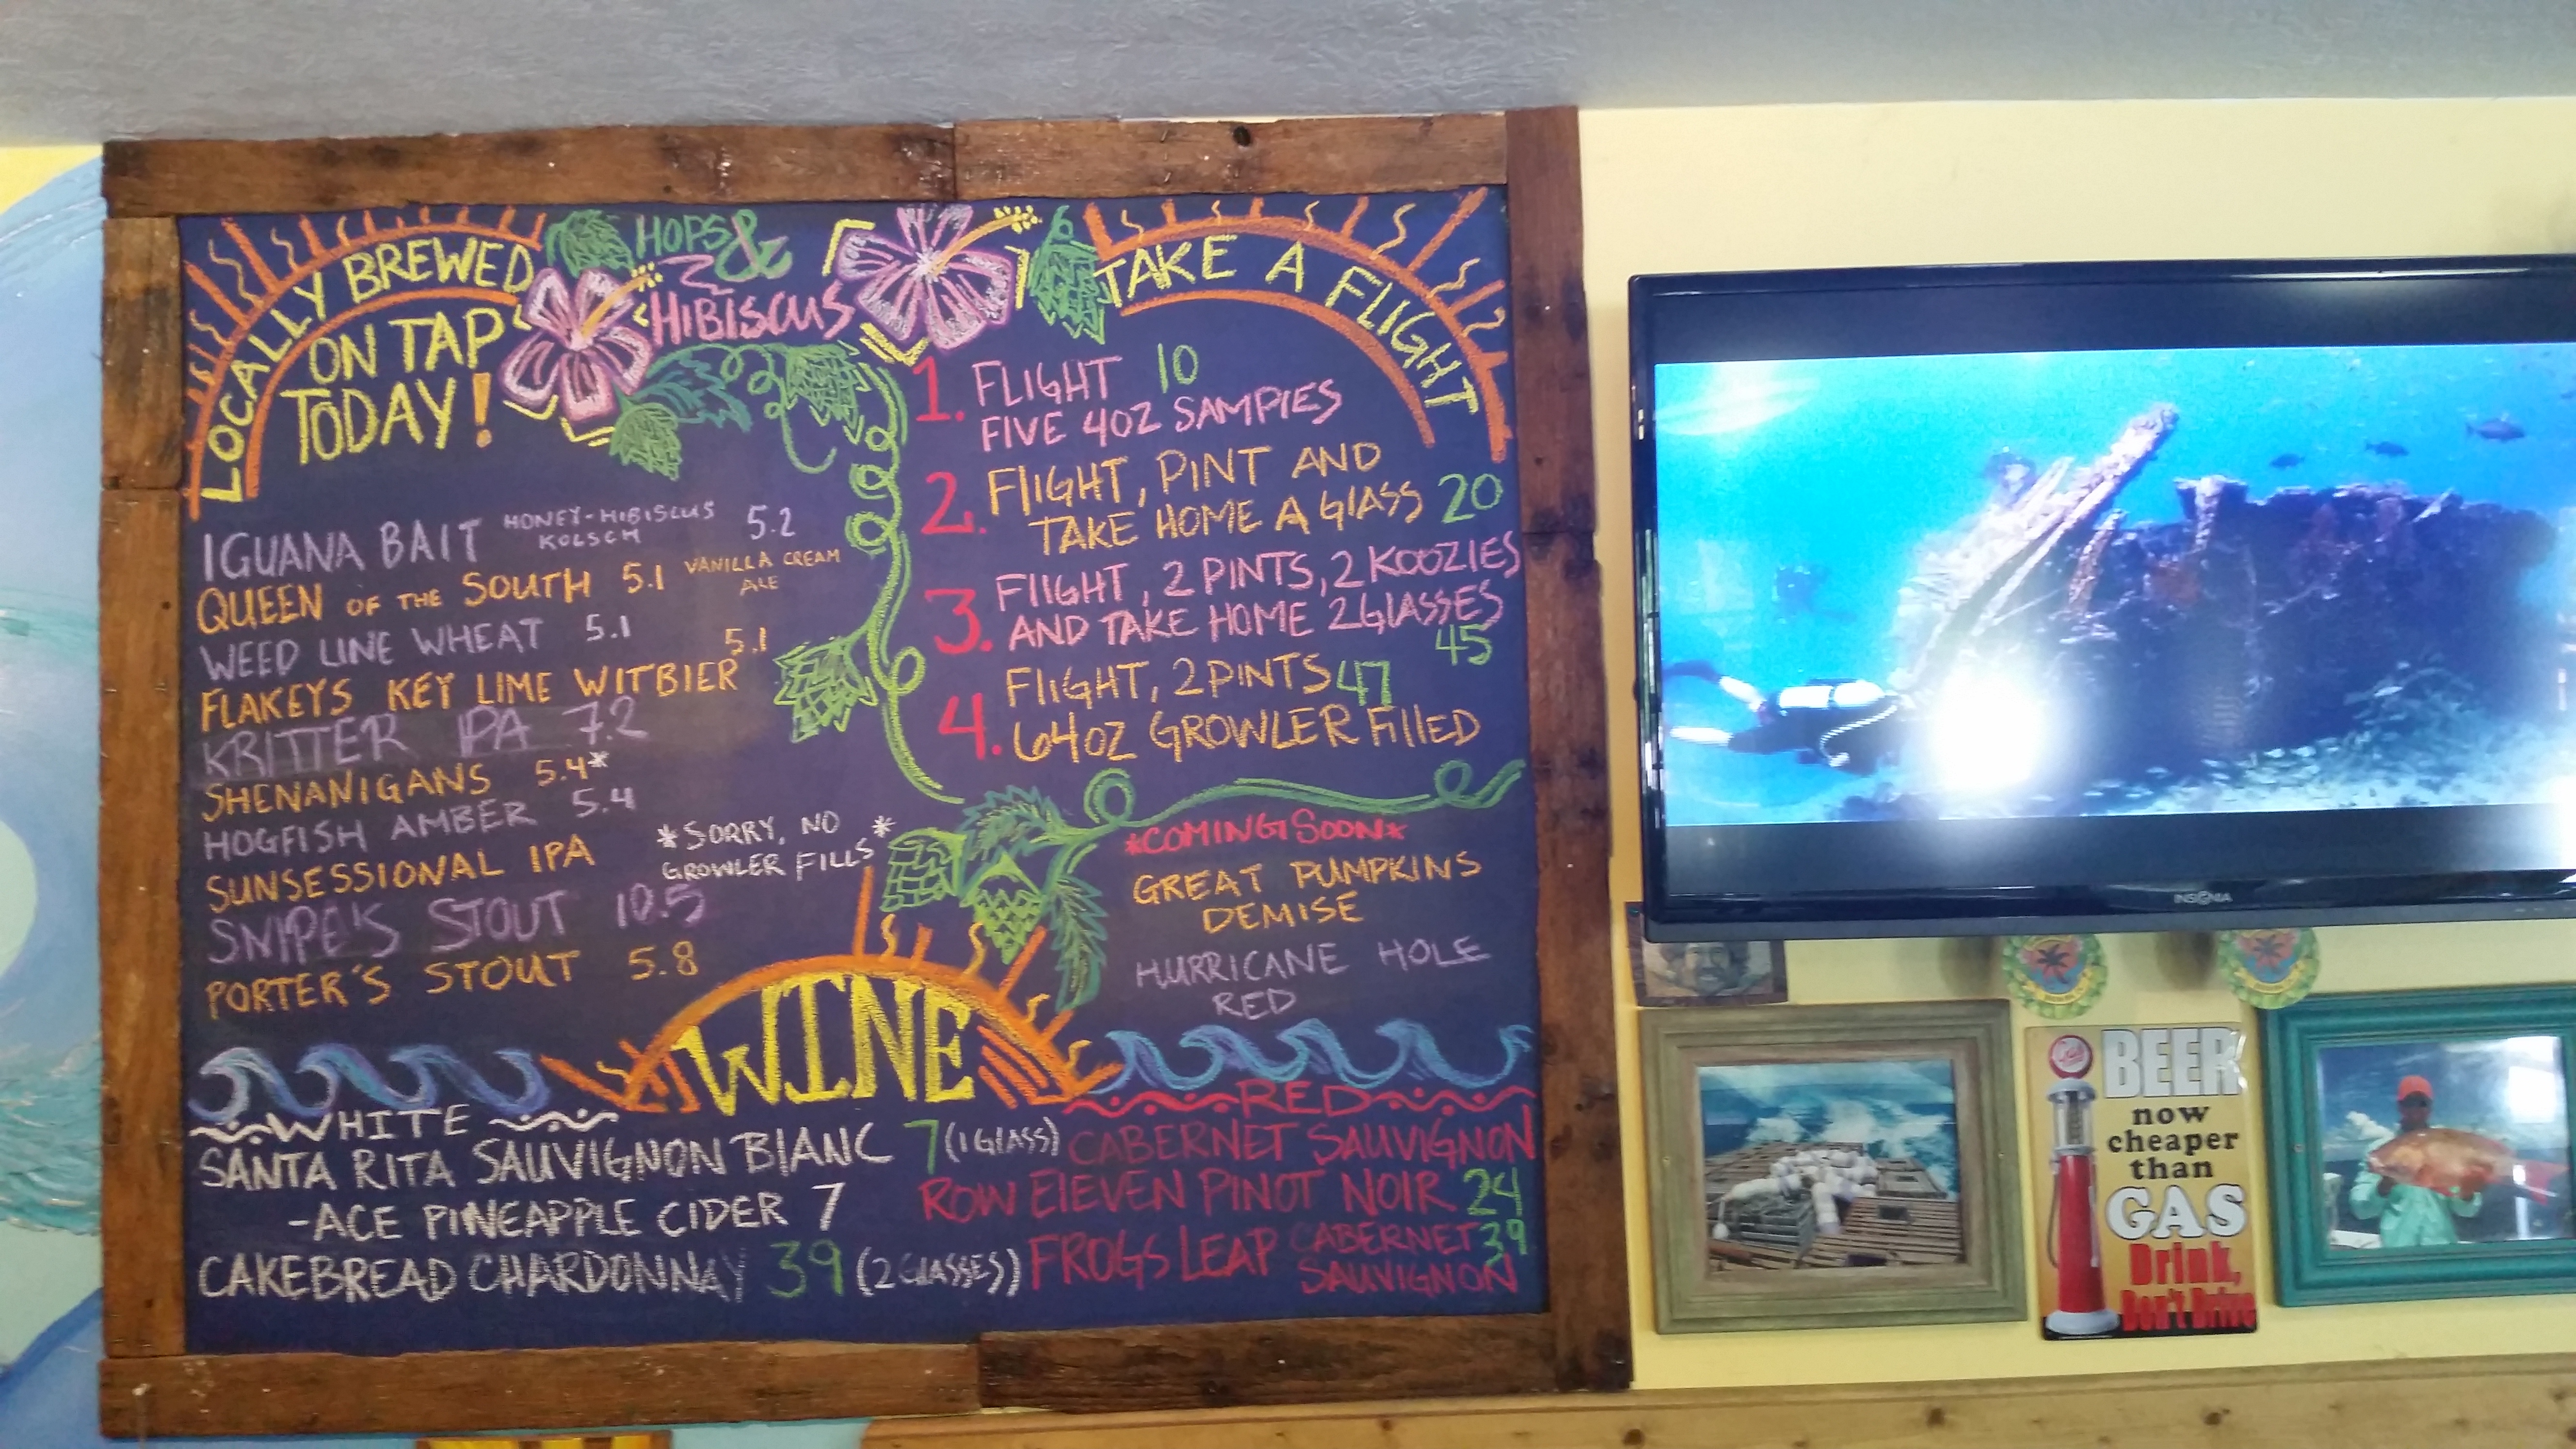 HOPS &
HIBISCUS
LOCALLY BREWED
ON TAP
TODAY!
IGUANA BAIT HONEY-HIBISCUS 5.2
KOLSCH
QUEEN OF THE SOUTH 5.1 VANILLA CREAM
ALE
WEED LINE WHEAT 5.1
5.1
FLAKEYS KEY LIME WITBIER
KRITTER IPA 7.2
SHENANIGANS 5.4*
HOGFISH AMBER 5.4
SUNSESSIONAL IPA
SNIPE'S STOUT 10.5
PORTER'S STOUT 5.8
*SORRY, NO *
GROWLER FILLS
TAKE A FLIGHT
1. FLIGHT 10
FIVE 4OZ SAMPLES
2. FLIGHT, PINT AND
TAKE HOME A GLASS 20
3. FLIGHT, 2 PINTS, 2 KOOZIES
AND TAKE HOME 2 GLASSES
45
4. FLIGHT, 2 PINTS 47
64OZ GROWLER FILLED
*COMING SOON*
GREAT PUMPKINS
DEMISE
HURRICANE HOLE
RED
WINE
WHITE
SANTA RITA SAUVIGNON BLANC 7 (1 GLASS)
-ACE PINEAPPLE CIDER 7
CAKEBREAD CHARDONNAY 39 (2 GLASSES)
RED
CABERNET SAUVIGNON
ROW ELEVEN PINOT NOIR 24
FROGS LEAP CABERNET 39
SAUVIGNON
INSIGNIA
BEER
now
cheaper
than
GAS
Drink,
Don't Drive